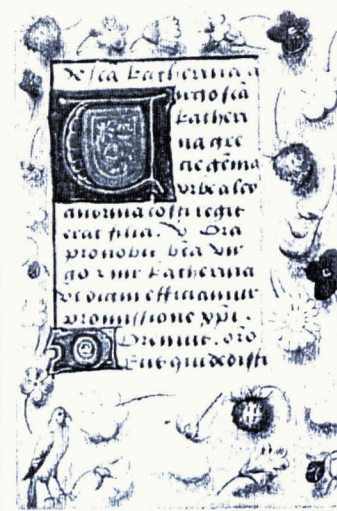 De sca katherina a
Uirgo sca
katheri
na gre
cie gema
vrbe alex
andrina costi regis
erat filia. v. Ora
pro nobis bta vir
go z mr katherina
Vt digni efficiamur
promissione xpi.
Oremus. oro
Deus qui dedisti